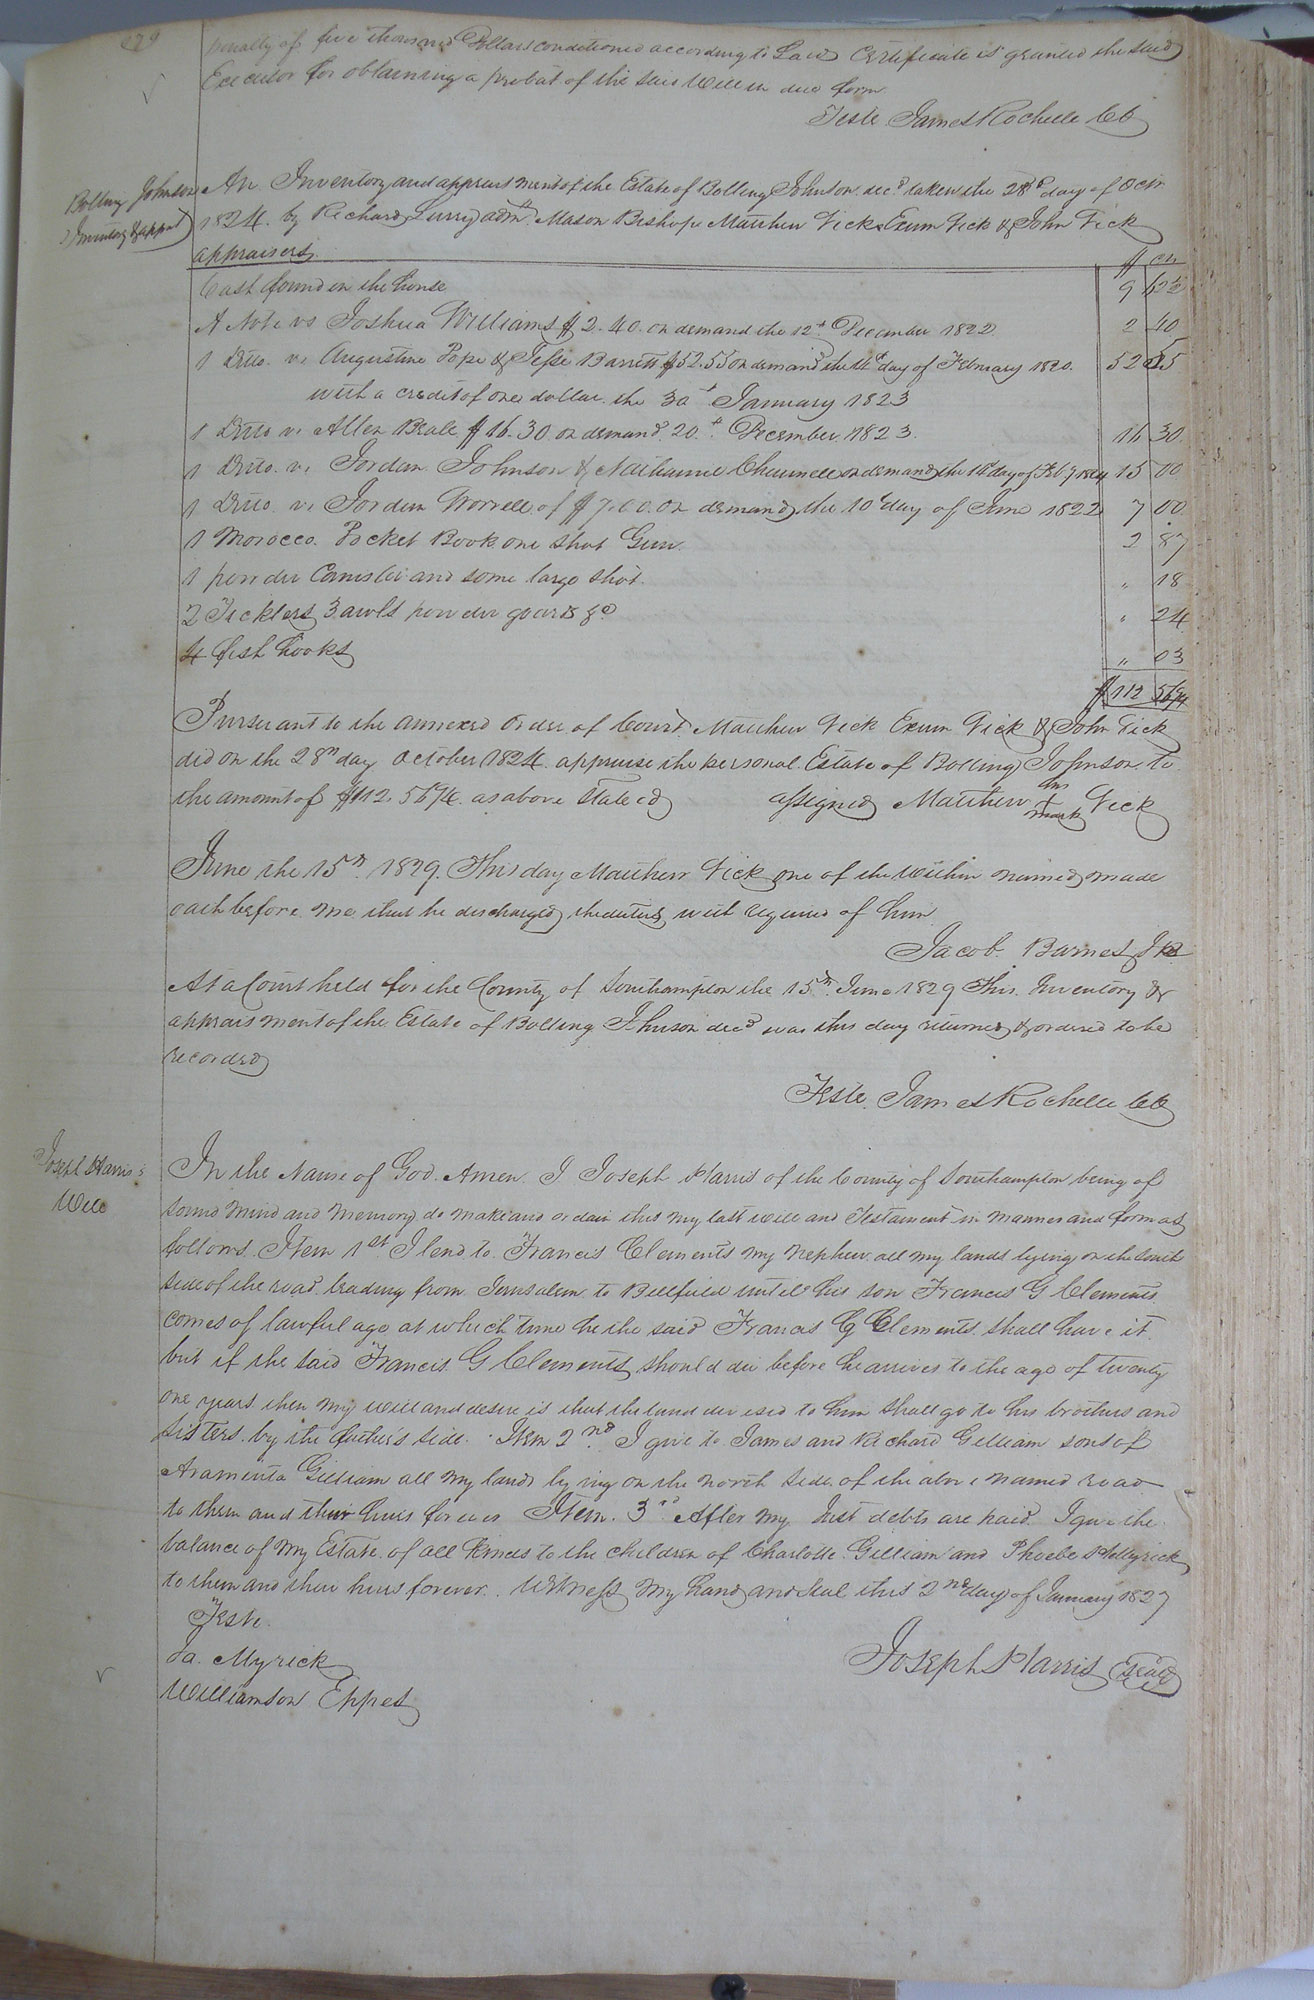 279
penalty of five thousand Dollars conditioned according to Law Certificate is granted the said
Executor for obtaining a probat of the said Will in due form
Teste James Rochelle CC
Bolling Johnson
Inventory & appmt
An Inventory and appraisment of the Estate of Bolling Johnson decd taken the 28th day of Octr
1824 by Richard Lurry admr Mason Bishop Matthew Vick Exum Vick & John Vick
appraisers
$ cts
Cash found in the house 9 62½
A Note vs Joshua Williams $2.40 on demand the 12th December 1822 2 40
1 Ditto vs Augustine Pope & Jesse Barrett $52.55 on demand the day of February 1820 52
with a credit of one dollar the 30th January 1823
1 Ditto vs Allen Beale $16.30 on demand 20th December 1823 16 30
1 Ditto vs Jordan Johnson & Nathaniel Channell on demand the day of Feby 1824 15 00
1 Ditto vs Jordan Worrell of $7.00 on demand the 10th day of June 1822 7 00
1 Morocco Pocket Book one shot Gun 2 87
1 powder Canister and some large shot " 18
2 Ticklers 3 awls powder gourds &c " 24
4 fish hooks " 03
$112
Pursuant to the annexed Order of Court Matthew Vick Exum Vick & John Vick
did on the 28th day October 1824 appraise the personal Estate of Bolling Johnson to
the amount of $112. as above Stated assigned Matthew his + mark Vick
June the 15th 1829 This day Matthew Vick one of the within named made
oath before me that he discharged the duties with required of him
Jacob Barnes
At a Court held for the County of Southampton the 15th June 1829 This Inventory &
appraisment of the Estate of Bolling Jhnson decd was this day returned & ordered to be
recorded
Teste James Rochelle CC
Joseph Harris's
Will
In the Name of God Amen I Joseph Harris of the County of Southampton being of
sound Mind and Memory do make and ordain this my last will and Testament in manner and form as
follows Item 1st I lend to Francis Clements my Nephew all my lands lying on the South
side of the road leading from Jerusalem to Bellfield until his son Francis G Clements
comes of lawful age at which time he the said Francis G Clements shall have it
but if the said Francis G Clements should die before he arrives to the age of twenty
one years then my will and desire is that the land devised to him shall go to his brothers and
sisters by the father's side. Item 2nd I give to James and Richard Gilliam sons of
Araminta Gilliam all my lands lying on the north side of the above named road
to them and their heirs forever Item 3rd After my Just debts are paid I give the
balance of my Estate of all kinds to the children of Charlotte Gilliam and Phoebe
to them and their heirs forever. Witness my hand and Seal this 2nd day of January 1827
Teste
Ja. Myrick
Williamson Eppes
Joseph Harris Seal